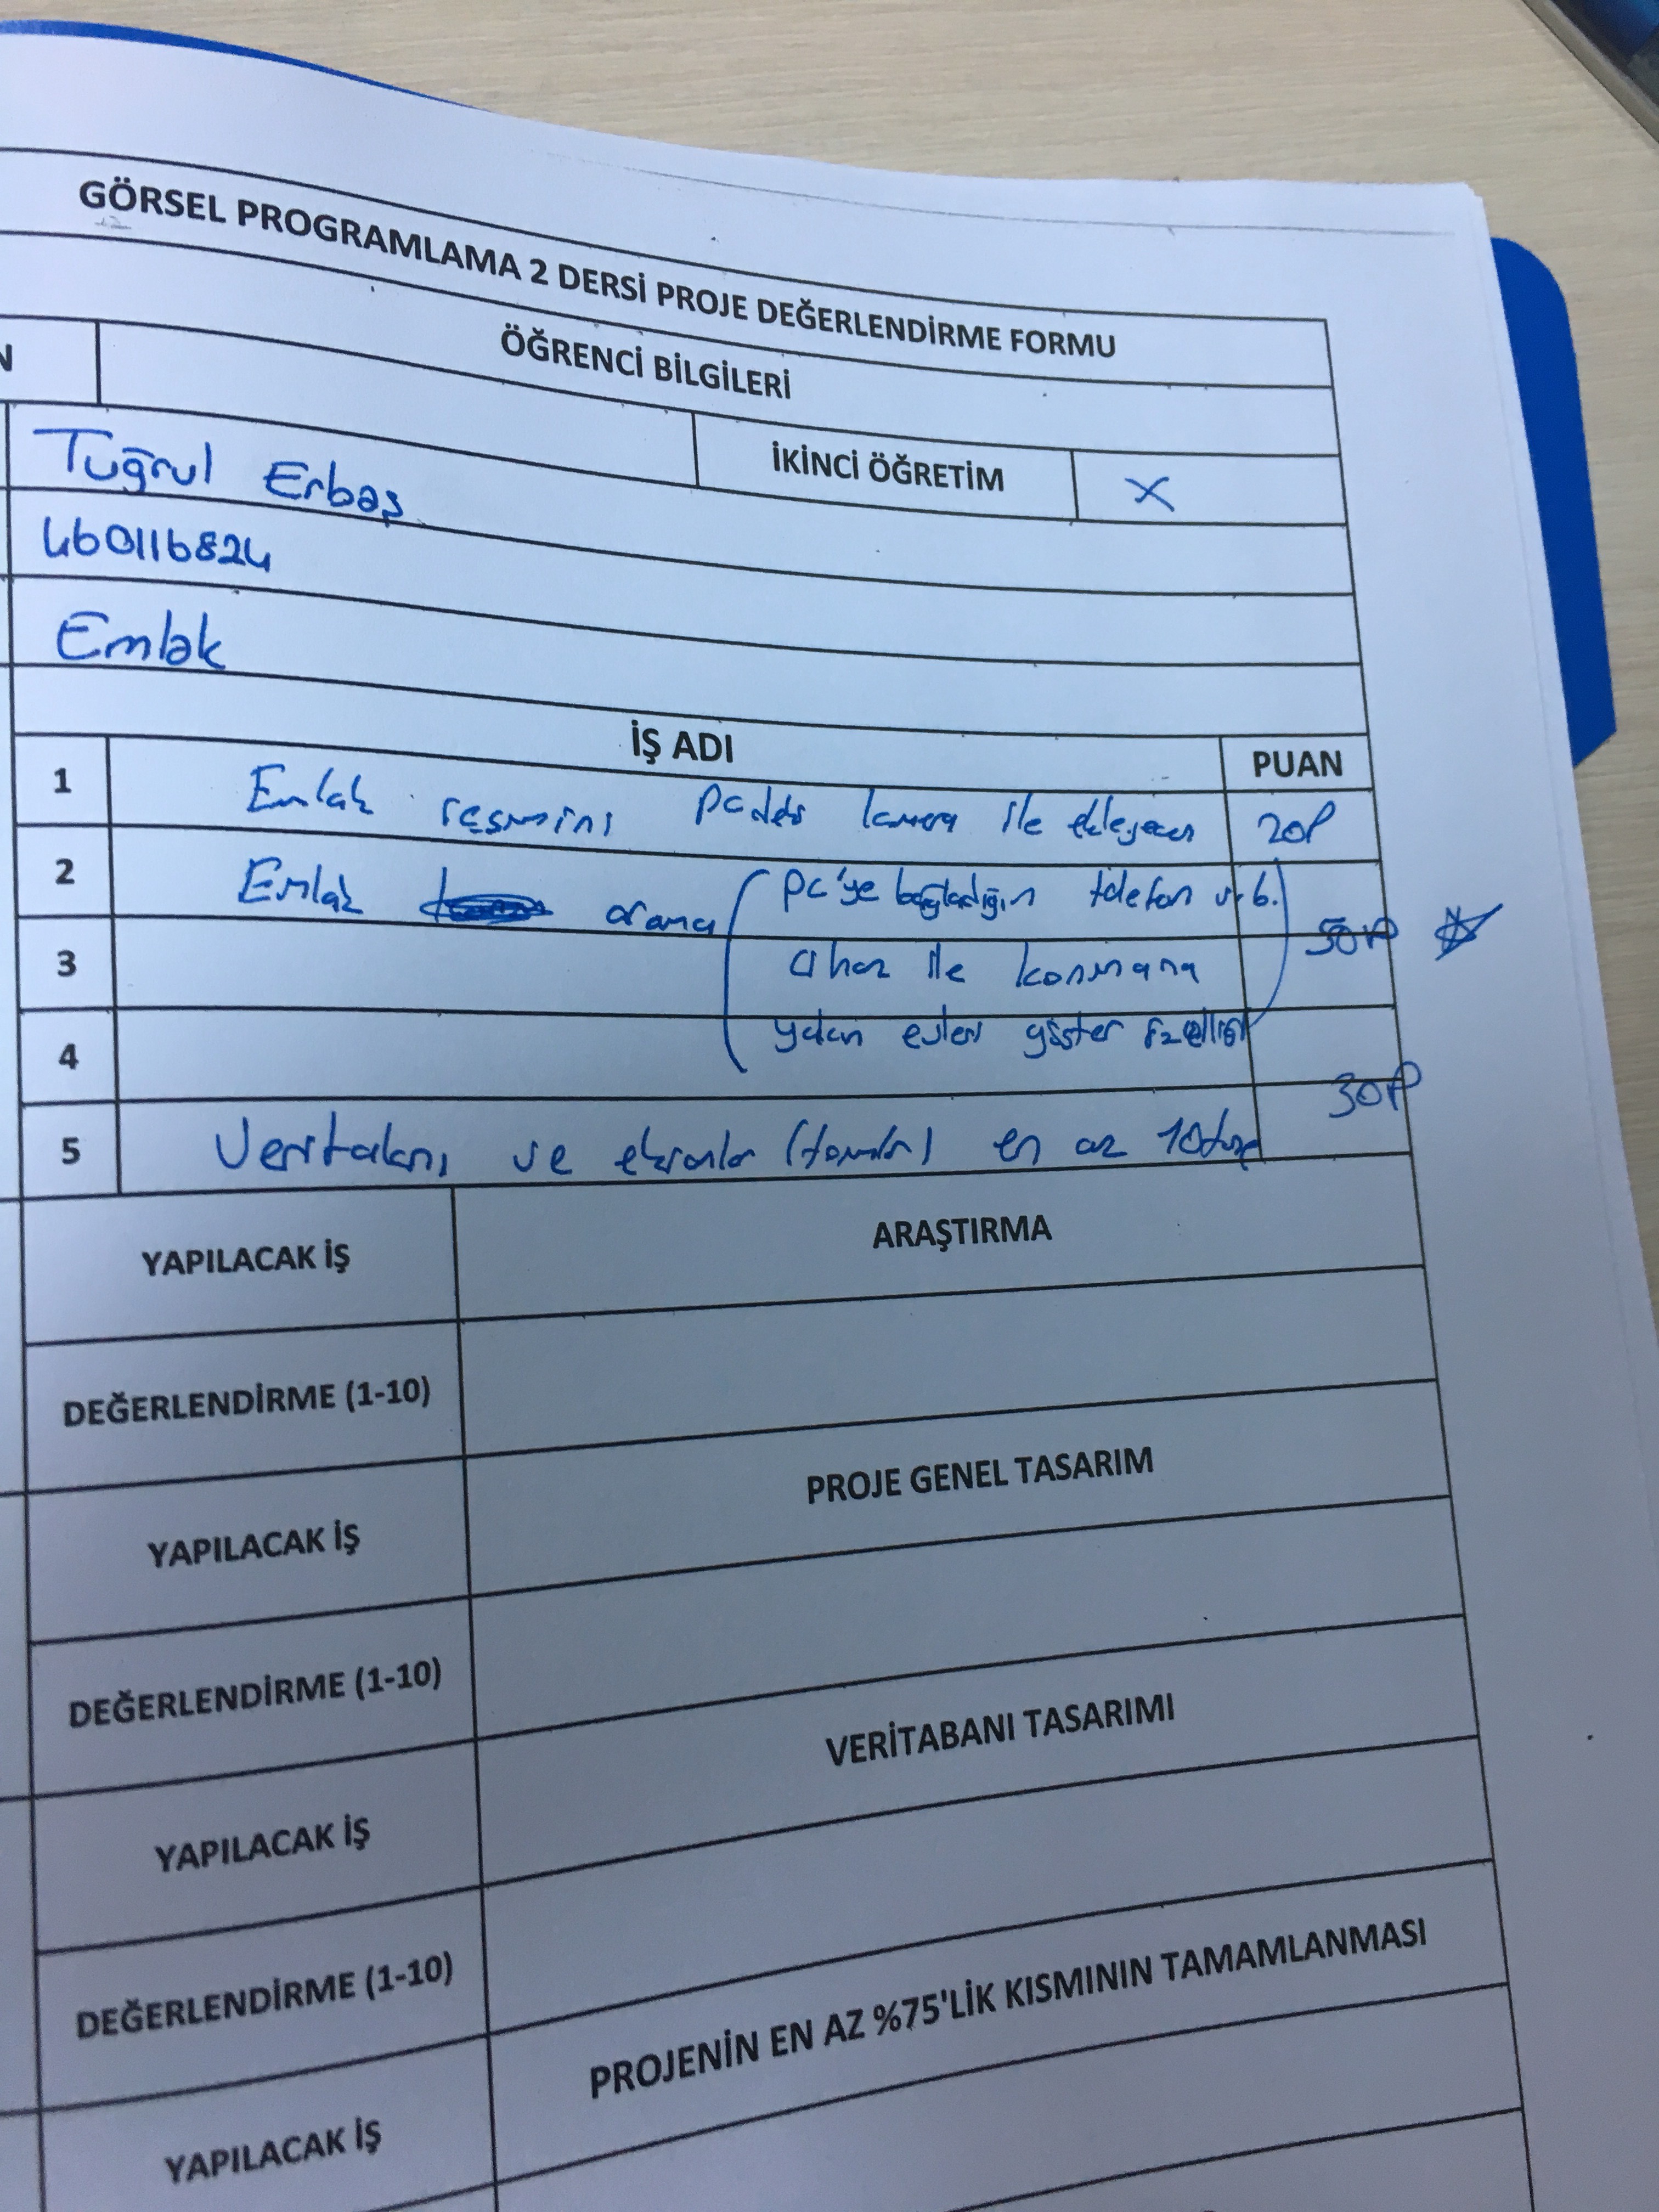 GÖRSEL PROGRAMLAMA 2 DERSİ PROJE DEĞERLENDİRME FORMU
N ÖĞRENCİ BİLGİLERİ
İKİNCİ ÖĞRETİM X
Tuğrul Erbaş
460116824
Emlak
İŞ ADI PUAN
1 Emlak resmini kamera ile ekleyecek 20P
2 Emlak arama (pc'ye bağladığın telefon v.b.)
3 cihaz ile konumana 50P
4 yakın evleri göster özelliği
5 Veritabanı ve ekranlar (formlar) en az 10 30P
YAPILACAK İŞ ARAŞTIRMA
DEĞERLENDİRME (1-10)
YAPILACAK İŞ PROJE GENEL TASARIM
DEĞERLENDİRME (1-10)
YAPILACAK İŞ VERİTABANI TASARIMI
DEĞERLENDİRME (1-10)
YAPILACAK İŞ PROJENİN EN AZ %75'LİK KISMININ TAMAMLANMASI